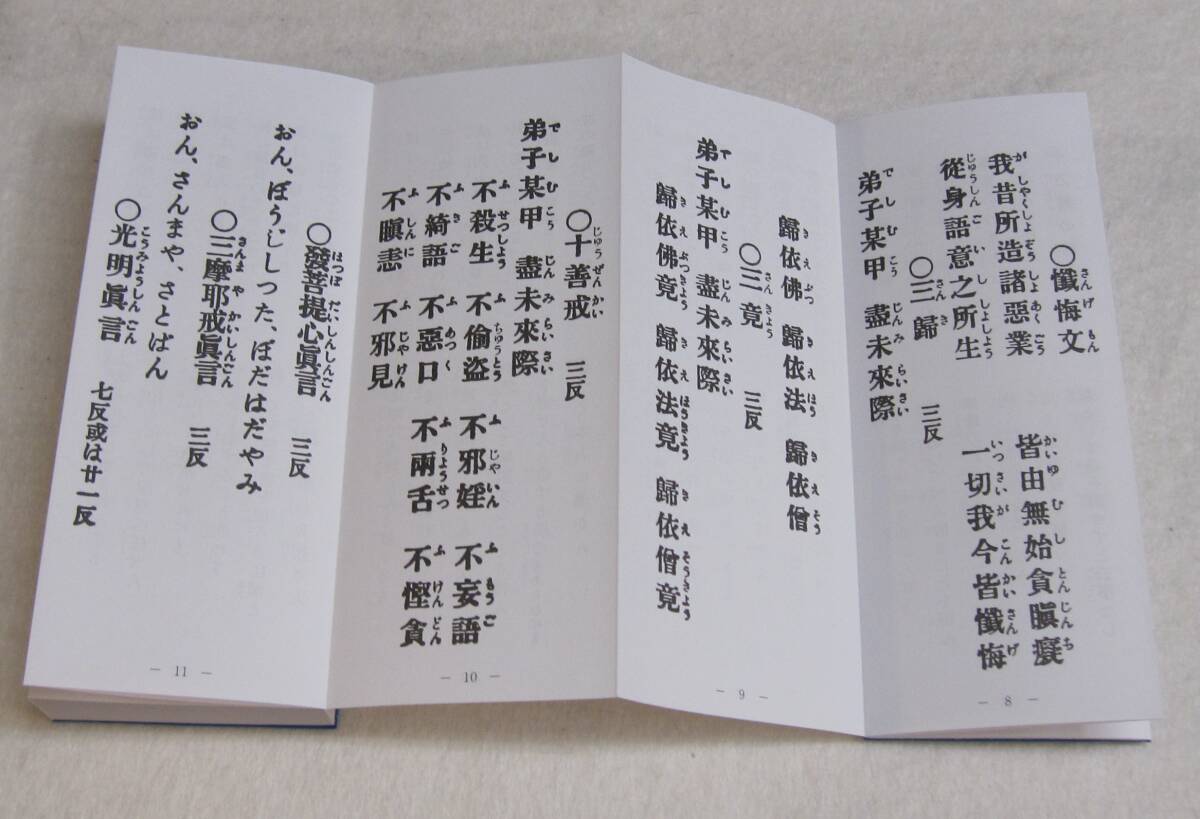 ○懺悔文
我昔所造諸惡業　皆由無始貪瞋癡
從身語意之所生　一切我今皆懺悔
○三歸　三反
弟子某甲　盡未來際
－ 8 －
歸依佛　歸依法　歸依僧
○三竟　三反
弟子某甲　盡未來際
歸依佛竟　歸依法竟　歸依僧竟
－ 9 －
○十善戒　三反
弟子某甲　盡未來際
不殺生　不偷盜　不邪婬　不妄語
不綺語　不惡口　不兩舌　不慳貪
不瞋恚　不邪見
－ 10 －
○發菩提心眞言　三反
おん、ぼうじしった、ぼだはだやみ
○三摩耶戒眞言　三反
おん、さんまや、さとばん
○光明眞言　七反或は廿一反
－ 11 －